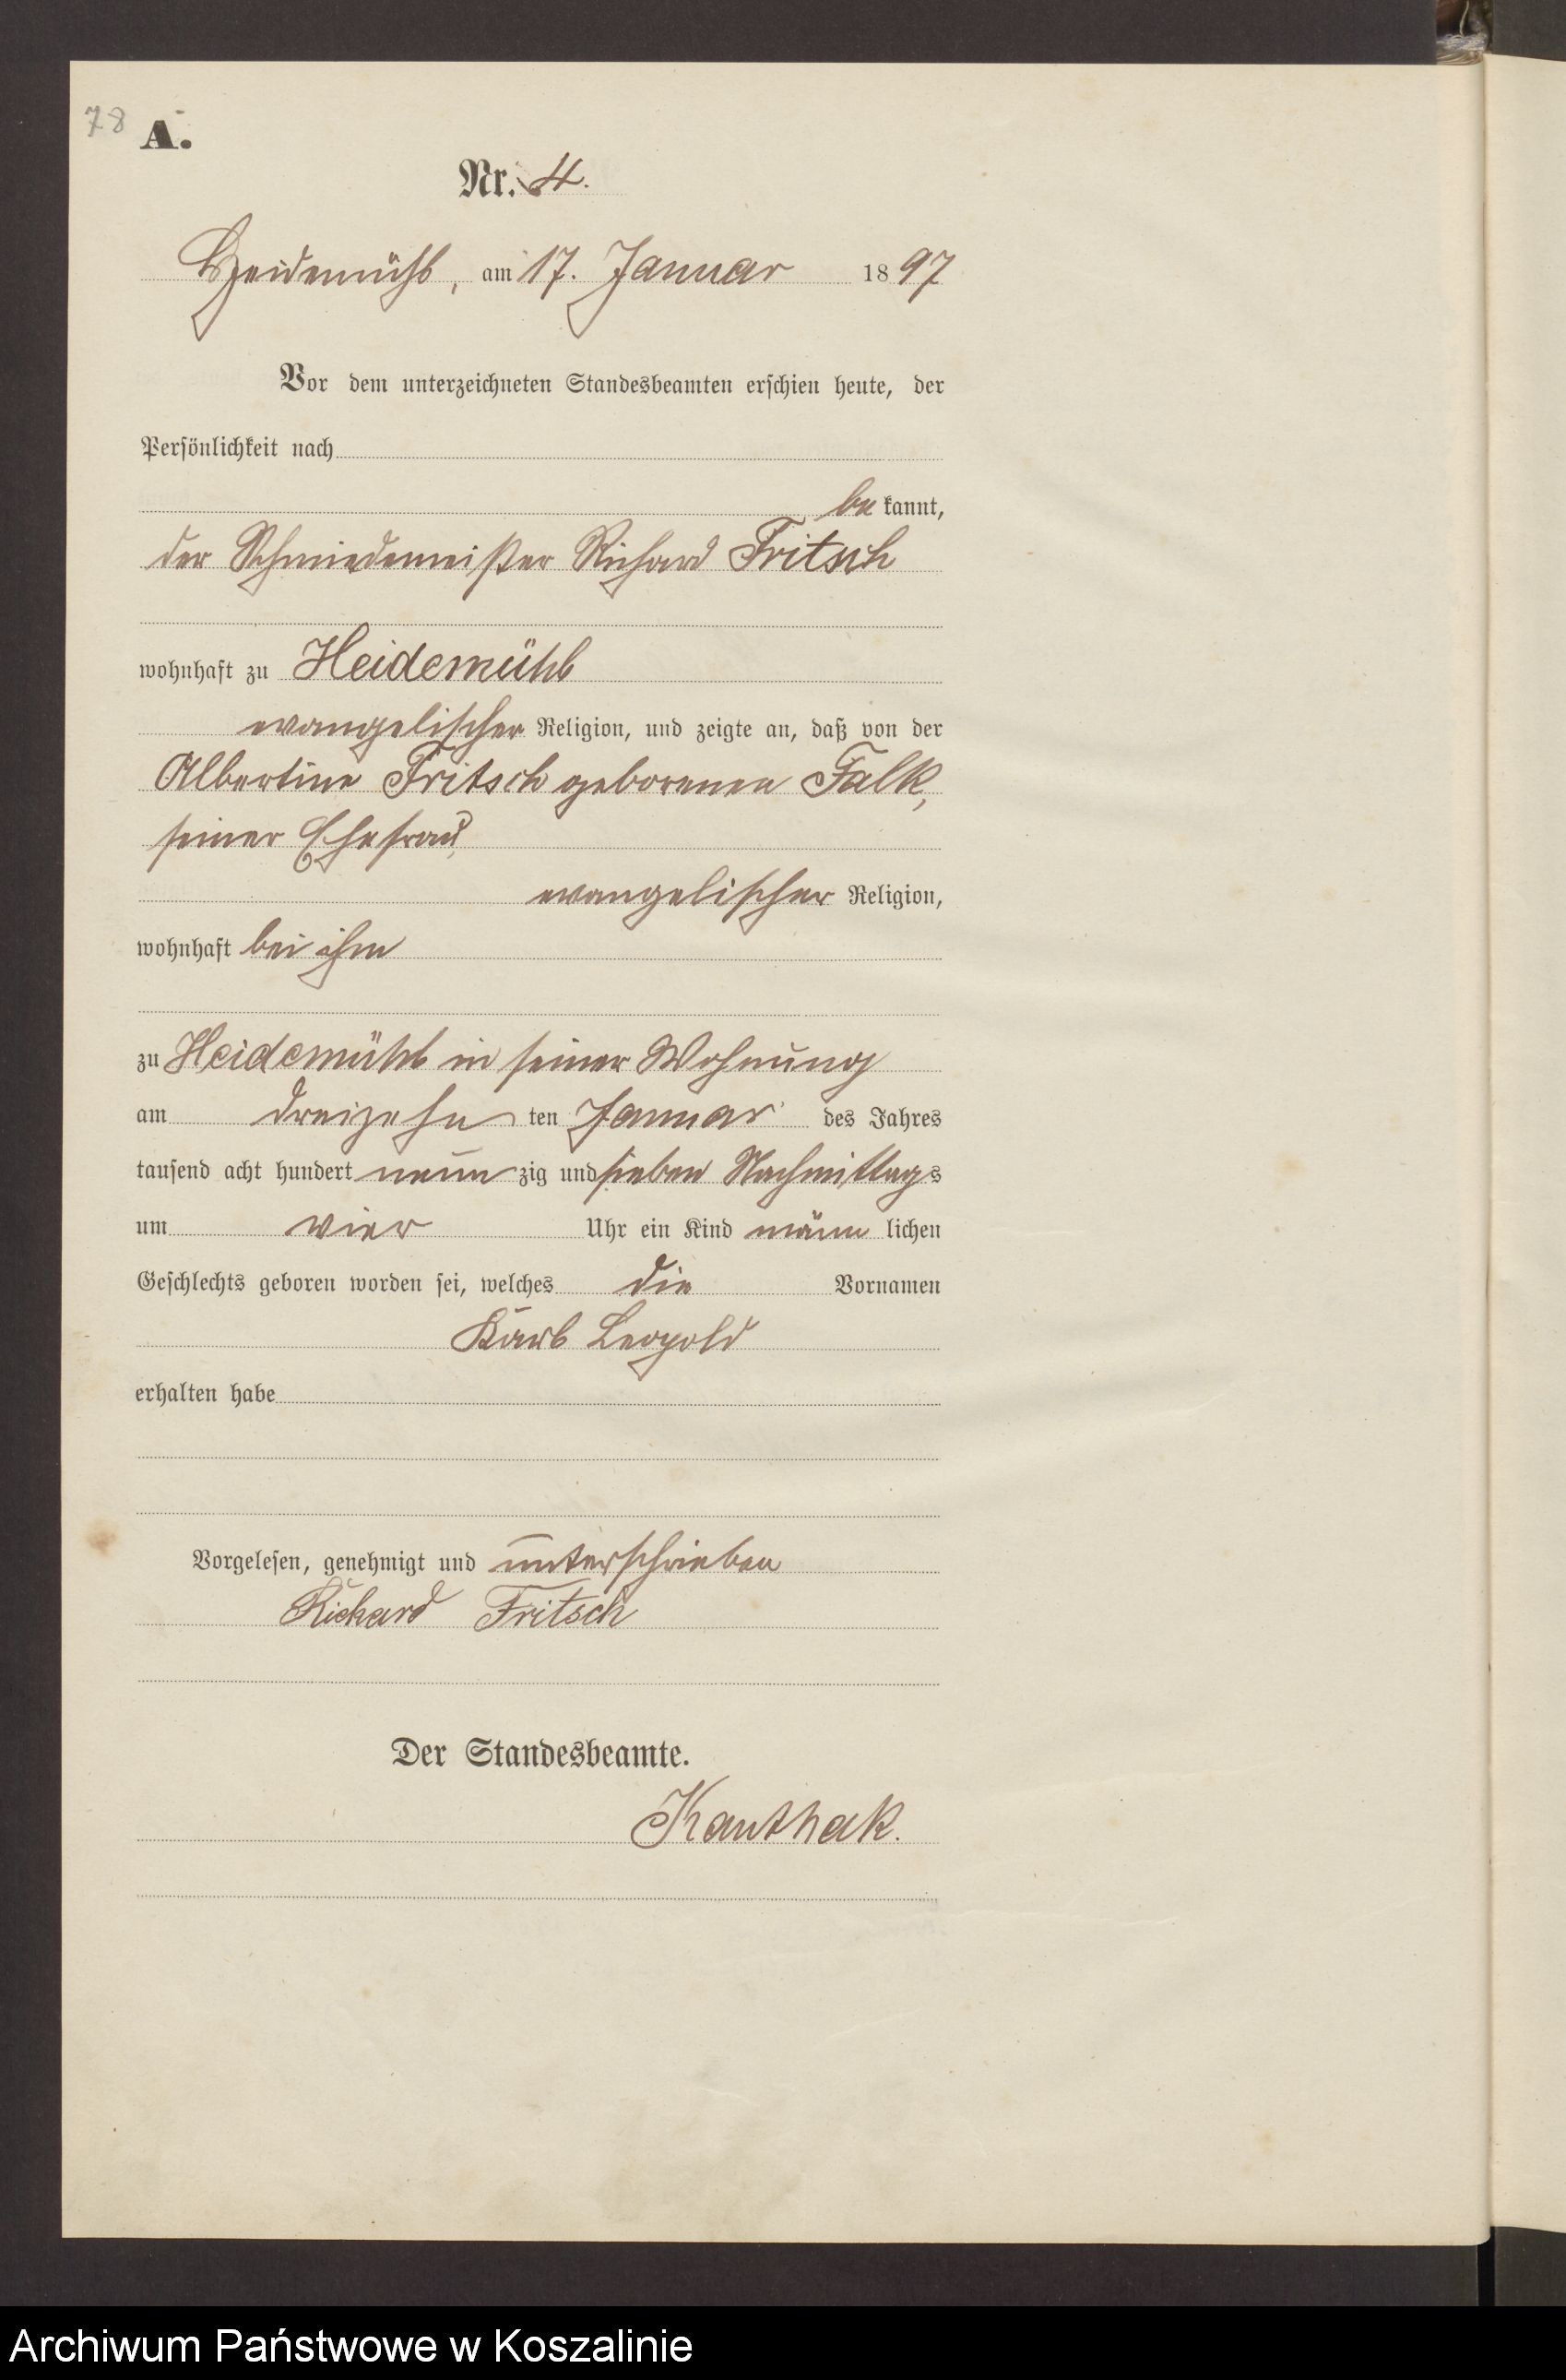 78
A.
Nr. 4.
Heidemühl, am 17. Januar 1897
Vor dem unterzeichneten Standesbeamten erschien heute, der
Persönlichkeit nach
be kannt,
der Schmiedemeister Richard Fritsch
wohnhaft zu Heidemühl
evangelischer Religion, und zeigte an, daß von der
Albertine Fritsch geborenen Falk,
seiner Ehefrau,
evangelischer Religion,
wohnhaft bei ihm
zu Heidemühl in seiner Wohnung
am dreizehn ten Januar des Jahres
tausend acht hundert neun zig und sieben Nachmittags
um vier Uhr ein Kind männ lichen
Geschlechts geboren worden sei, welches die Vornamen
Leopold
erhalten habe
Vorgelesen, genehmigt und unterschrieben
Richard Fritsch
Der Standesbeamte.
Kanthak.
Archiwum Państwowe w Koszalinie